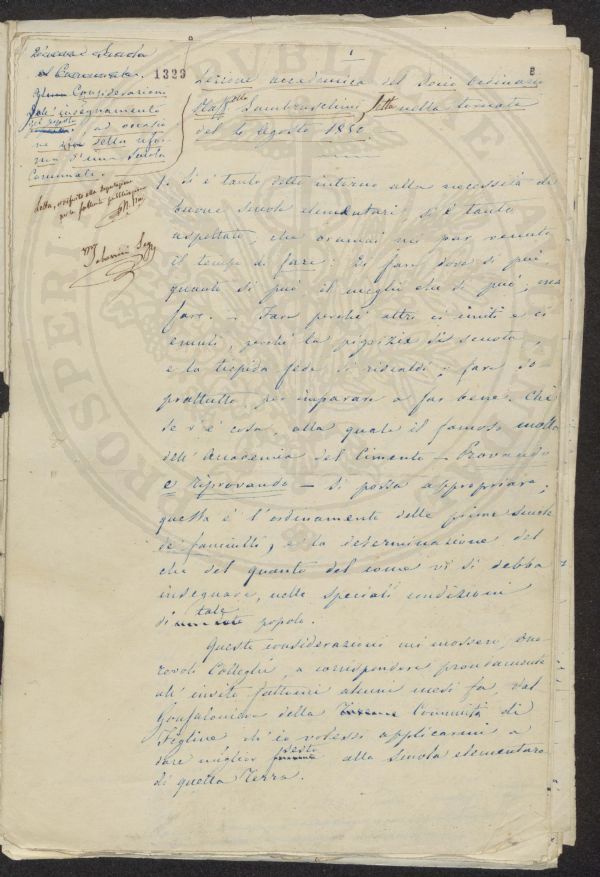 Scuola
Considerazioni
insegnamento
del popolo
ad occasio
ne della rifor
ma d'una Scuola
Comunale.
1323
1
8
Lezione accademica del Socio Ordinario
Lambruschini, letta nella tornata
del 6 Agosto 1832
1. Si è tanto detto intorno alla necessità di
buone scuole elementari, si è tanto
aspettato, che oramai mi par venuto
il tempo di fare: Di fare dove si può,
quanto si può il meglio che si può, ma
fare. - Fare perchè altri ci imiti e ci
emuli, perchè la pigrizia si scuota,
e la tiepida fede si riscaldi; fare so-
prattutto per imparare a far bene. Chè
se v'è cosa, alla quale il famoso motto
dell'Accademia del Cimento - Provando
e riprovando - si possa appropriare,
questa è l'ordinamento delle prime scuole
de' fanciulli, e la determinazione del
che del quanto del come vi si debba
insegnare, nelle speciali condizioni
di tale popolo.
Queste considerazioni mi mossero, Ono-
revoli Colleghi, a corrispondere prontamente
all'invito fattomi alcuni mesi fa, dal
Gonfaloniere della Comunità di
Figline ch'io volessi applicarmi a
dare miglior sesto alla Scuola elementare
di quella Terra.